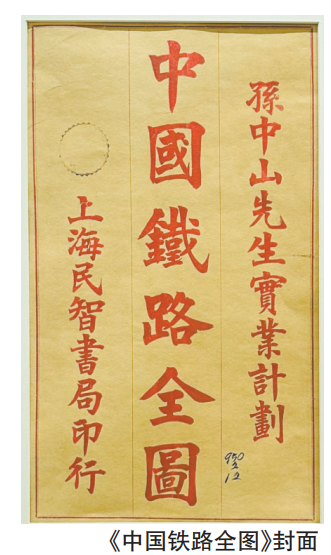 孫中山先生實業計劃
中國鐵路全圖
上海民智書局印行
950
2
12
《中国铁路全图》封面